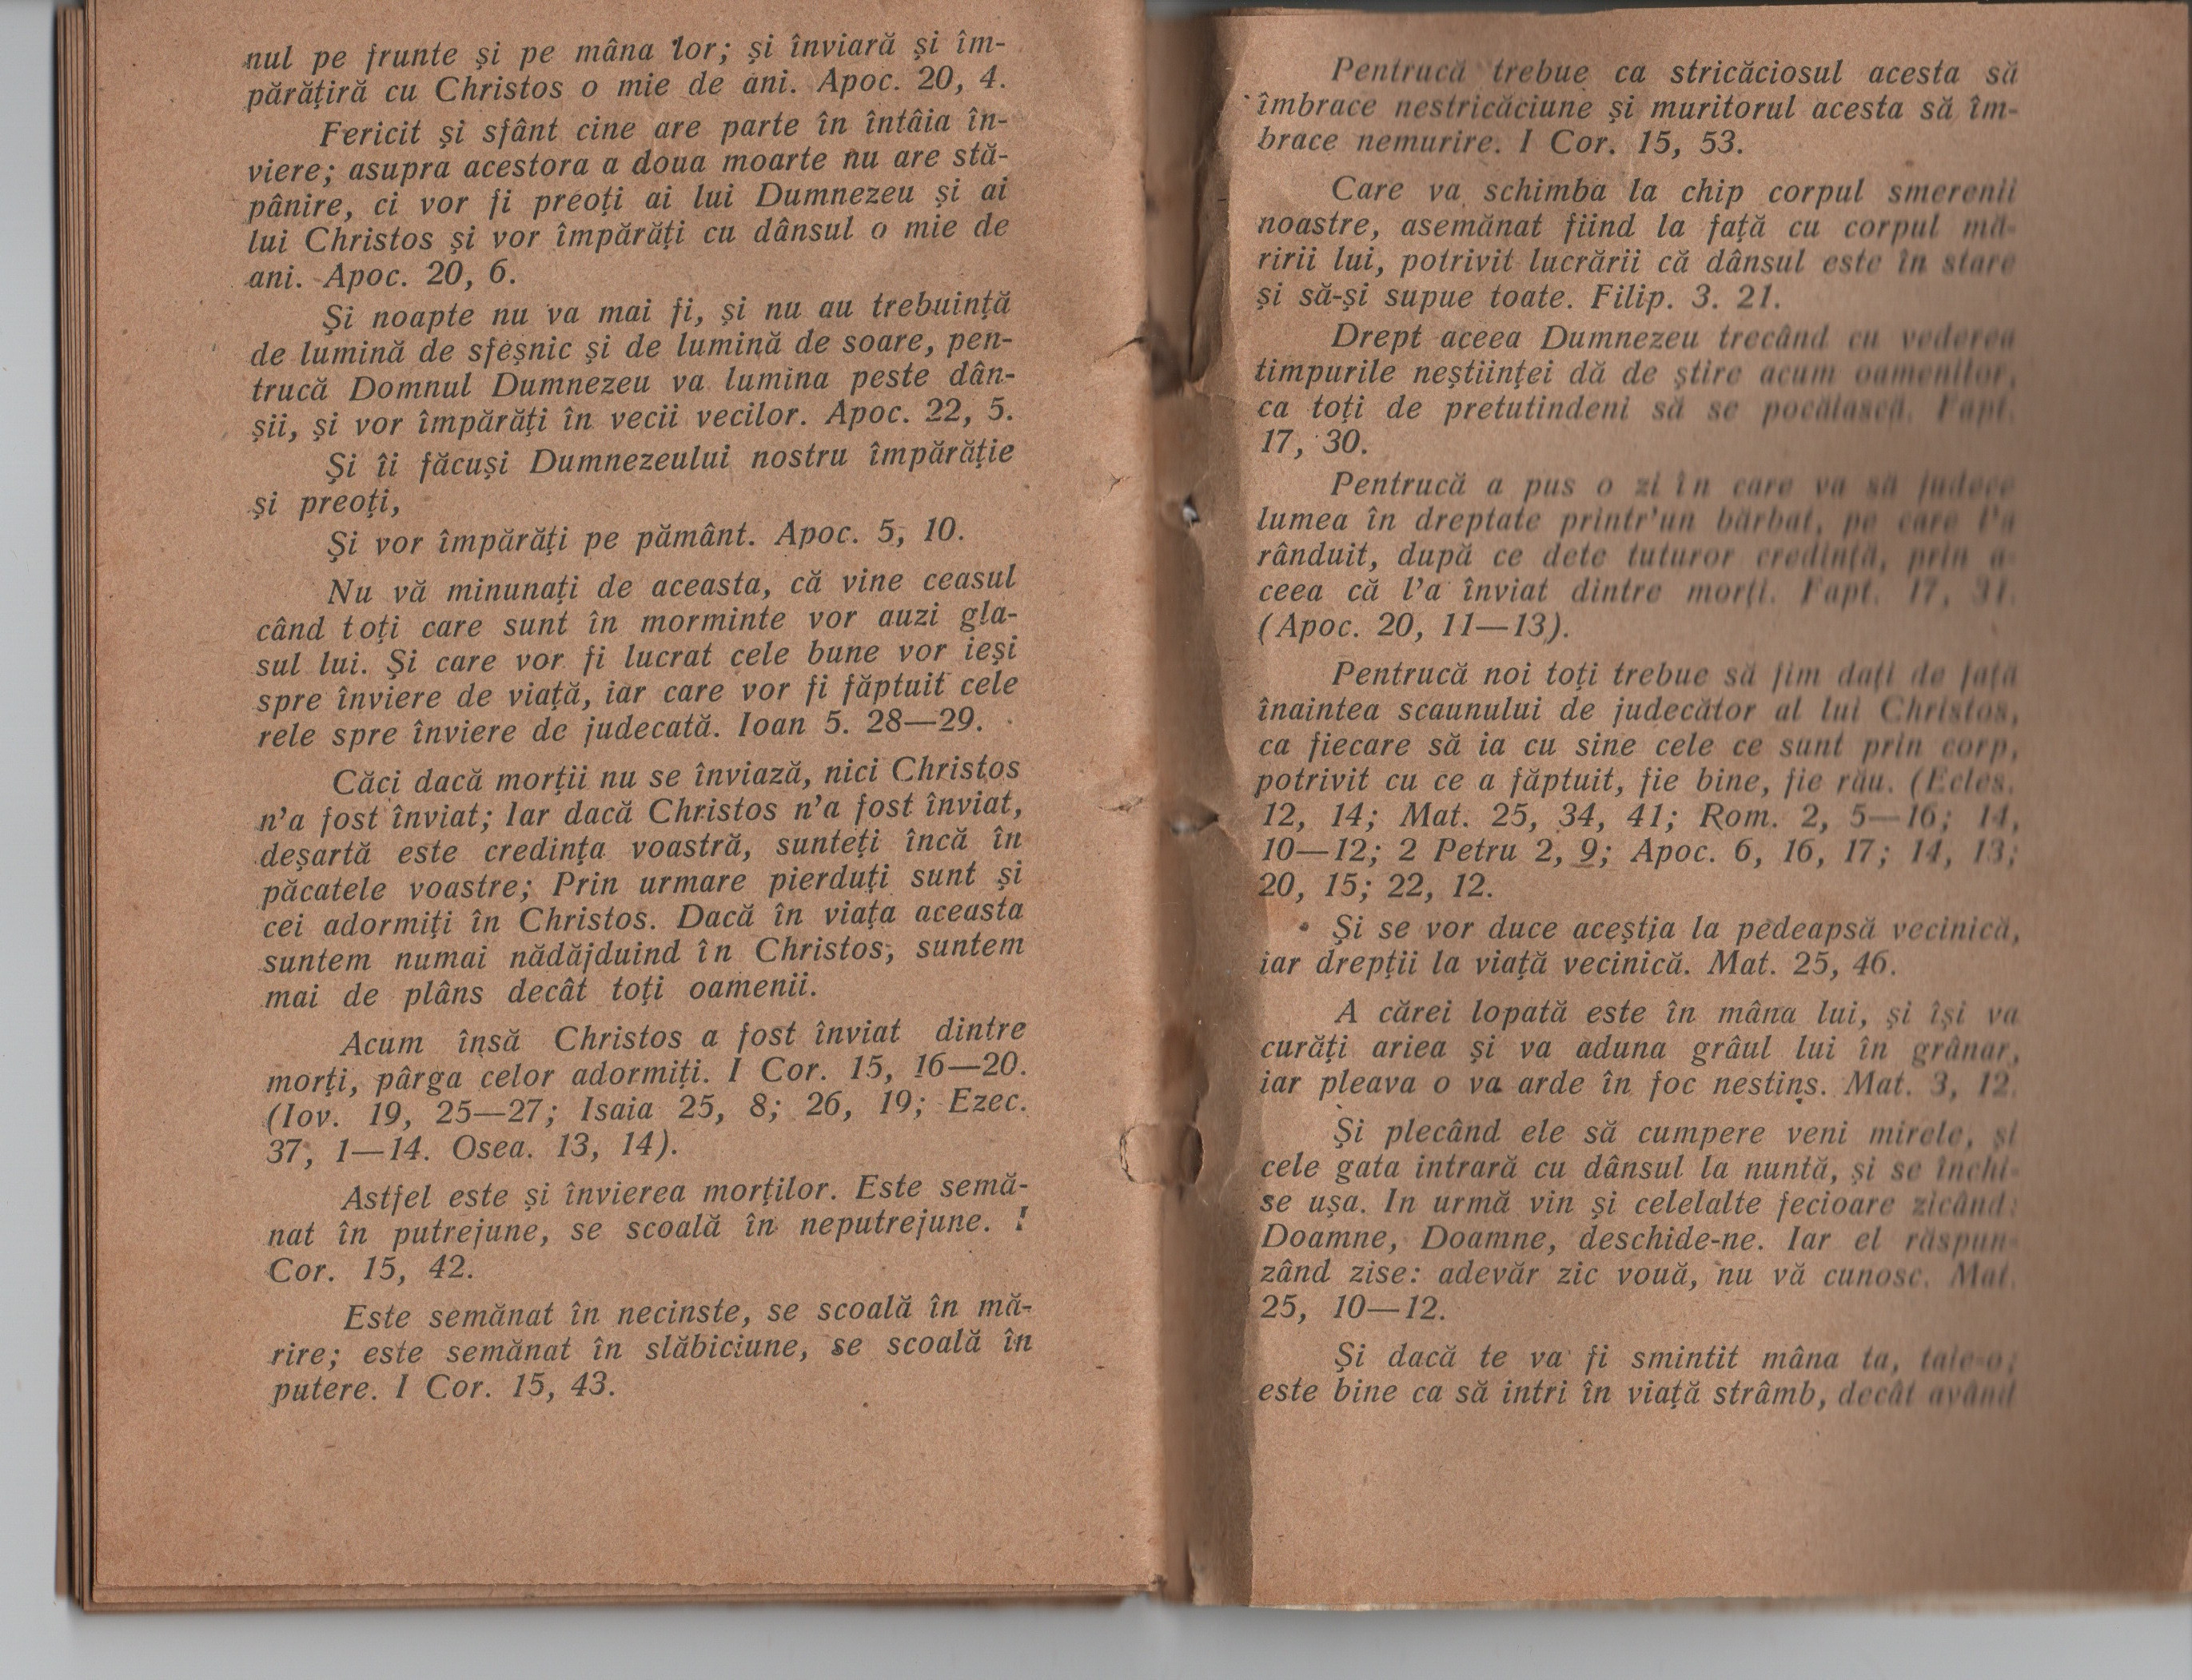 nul pe frunte și pe mâna lor; și înviară și îm-
părățiră cu Christos o mie de ani. Apoc. 20, 4.
Fericit și sfânt cine are parte în întâia în-
viere; asupra acestora a doua moarte nu are stă-
pânire, ci vor fi preoți ai lui Dumnezeu și ai
lui Christos și vor împărăți cu dânsul o mie de
ani. Apoc. 20, 6.
Și noapte nu va mai fi, și nu au trebuință
de lumină de sfeșnic și de lumină de soare, pen-
trucă Domnul Dumnezeu va lumina peste dân-
șii, și vor împărăți în vecii vecilor. Apoc. 22, 5.
Și îi făcuși Dumnezeului nostru împărăție
și preoți,
Și vor împărăți pe pământ. Apoc. 5, 10.
Nu vă minunați de aceasta, că vine ceasul
când toți care sunt în morminte vor auzi gla-
sul lui. Și care vor fi lucrat cele bune vor ieși
spre înviere de viață, iar care vor fi făptuit cele
rele spre înviere de judecată. Ioan 5. 28—29.
Căci dacă morții nu se înviază, nici Christos
n'a fost înviat; Iar dacă Christos n'a fost înviat,
deșartă este credința voastră, sunteți încă în
păcatele voastre; Prin urmare pierduți sunt și
cei adormiți în Christos. Dacă în viața aceasta
suntem numai nădăjduind în Christos, suntem
mai de plâns decât toți oamenii.
Acum însă Christos a fost înviat dintre
morți, pârga celor adormiți. I Cor. 15, 16—20.
(Iov. 19, 25—27; Isaia 25, 8; 26, 19; Ezec.
37, 1—14. Osea. 13, 14).
Astfel este și învierea morților. Este semă-
nat în putrejune, se scoală în neputrejune. I
Cor. 15, 42.
Este semănat în necinste, se scoală în mă-
rire; este semănat în slăbiciune, se scoală în
putere. I Cor. 15, 43.
Pentrucă trebue ca stricăciosul acesta să
îmbrace nestricăciune și muritorul acesta să îm-
brace nemurire. I Cor. 15, 53.
Care va schimba la chip corpul smerenii
noastre, asemănat fiind la față cu corpul mă-
ririi lui, potrivit lucrării că dânsul este în stare
și să-și supue toate. Filip. 3. 21.
Drept aceea Dumnezeu trecând cu vederea
timpurile neștiinței dă de știre acum oamenilor,
ca toți de pretutindeni să se pocăiască. Fapt.
17, 30.
Pentrucă a pus o zi în care va să judece
lumea în dreptate printr'un bărbat, pe care l'a
rânduit, după ce dete tuturor credință, prin a-
ceea că l'a înviat dintre morți. Fapt. 17, 31.
(Apoc. 20, 11—13).
Pentrucă noi toți trebue să fim dați de față
înaintea scaunului de judecător al lui Christos,
ca fiecare să ia cu sine cele ce sunt prin corp,
potrivit cu ce a făptuit, fie bine, fie rău. (Ecles.
12, 14; Mat. 25, 34, 41; Rom. 2, 5—16; 14,
10—12; 2 Petru 2, 9; Apoc. 6, 16, 17; 14, 13;
20, 15; 22, 12.
Și se vor duce aceștia la pedeapsă vecinică,
iar drepții la viață vecinică. Mat. 25, 46.
A cărei lopată este în mâna lui, și își va
curăți ariea și va aduna grâul lui în grânar,
iar pleava o va arde în foc nestins. Mat. 3, 12.
Și plecând ele să cumpere veni mirele, și
cele gata intrară cu dânsul la nuntă, și se închi-
se ușa. In urmă vin și celelalte fecioare zicând:
Doamne, Doamne, deschide-ne. Iar el răspun-
zând zise: adevăr zic vouă, nu vă cunosc. Mat.
25, 10—12.
Și dacă te va fi smintit mâna ta, taie-o;
este bine ca să intri în viață strâmb, decât având